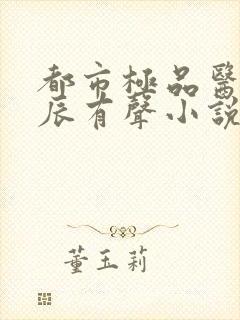 都市極品醫
辰有聲小說
董玉莉